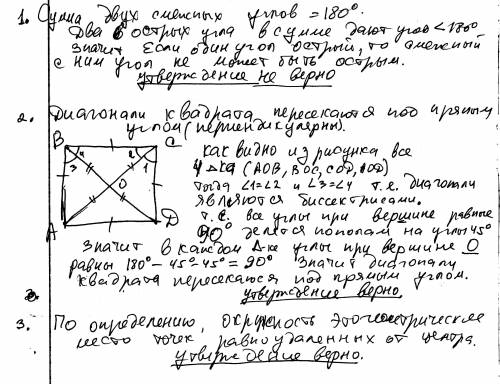 1. Сумма двух смежных углов = 180°.
Два острых угла в сумме дают угол < 180°
значит если один угол острый, то смежный
с ним угол не может быть острым.
утверждение не верно
2. Диагонали квадрата пересекаются под прямым
углом (перпендикулярны).
B C
4 2
3 1
O
A D
как видно из рисунка все
4 Δ-ка (AOB, BOC, COD, AOD)
тогда ∠1=∠2 и ∠3=∠4 т.е. диагонали
являются биссектрисами.
т.е. все углы при вершине равные
90° делятся пополам на углы 45°
значит в каждом Δ-ке углы при вершине O
равны 180° - 45° - 45° = 90° значит диагонали
квадрата пересекаются под прямым углом.
утверждение верно.
3. По определению, окружность это геометрическое
место точек равноудаленных от центра.
утверждение верно.